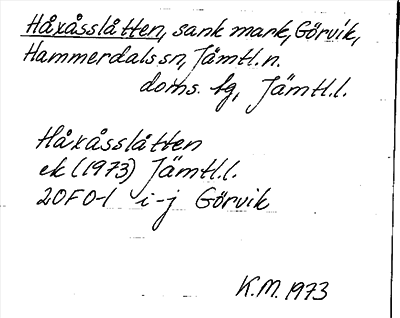 Håxåsslåtten, sank mark, Görvik,
Hammerdals sn, Jämtl. n.
doms. fg, Jämtl.l.
Håxåsslåtten
ek (1973) Jämtl.l.
20F0-1 i-j Görvik
K.M. 1973